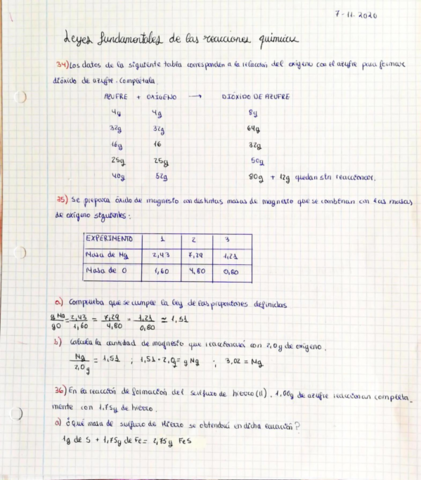 7-11-2020
Leyes fundamentales de las reacciones químicas
34) Los datos de la siguiente tabla corresponden a la relación del oxígeno con el azufre para formar
dióxido de azufre. Complétala
AZUFRE + OXÍGENO → DIÓXIDO DE AZUFRE
4g 4g 8g
32g 32g 64g
16g 16 32g
25g 25g 50g
40g 32g 80g + 12g quedan sin reaccionar.
35) Se prepara óxido de magnesio con distintas masas de magnesio que se combinan con las masas
de oxígeno siguientes:
EXPERIMENTO 1 2 3
Masa de Mg 2,43 7,29 1,21
Masa de O 1,60 4,80 0,80
a) Comprueba que se cumple la ley de las proporciones definidas
g Mg / g O = 2,43 / 1,60 = 7,29 / 4,80 = 1,21 / 0,80 ≅ 1,51
b) Calcula la cantidad de magnesio que reaccionará con 2,0g de oxígeno.
Mg / 2,0g = 1,51 ; 1,51 · 2,0g = g Mg ; 3,02 = Mg
36) En la reacción de formación del sulfuro de hierro (II), 1,00g de azufre reaccionan completa
mente con 1,75g de hierro.
a) ¿Qué masa de sulfuro de hierro se obtendrá en dicha reacción?
1g de S + 1,75g de Fe = 2,75g FeS